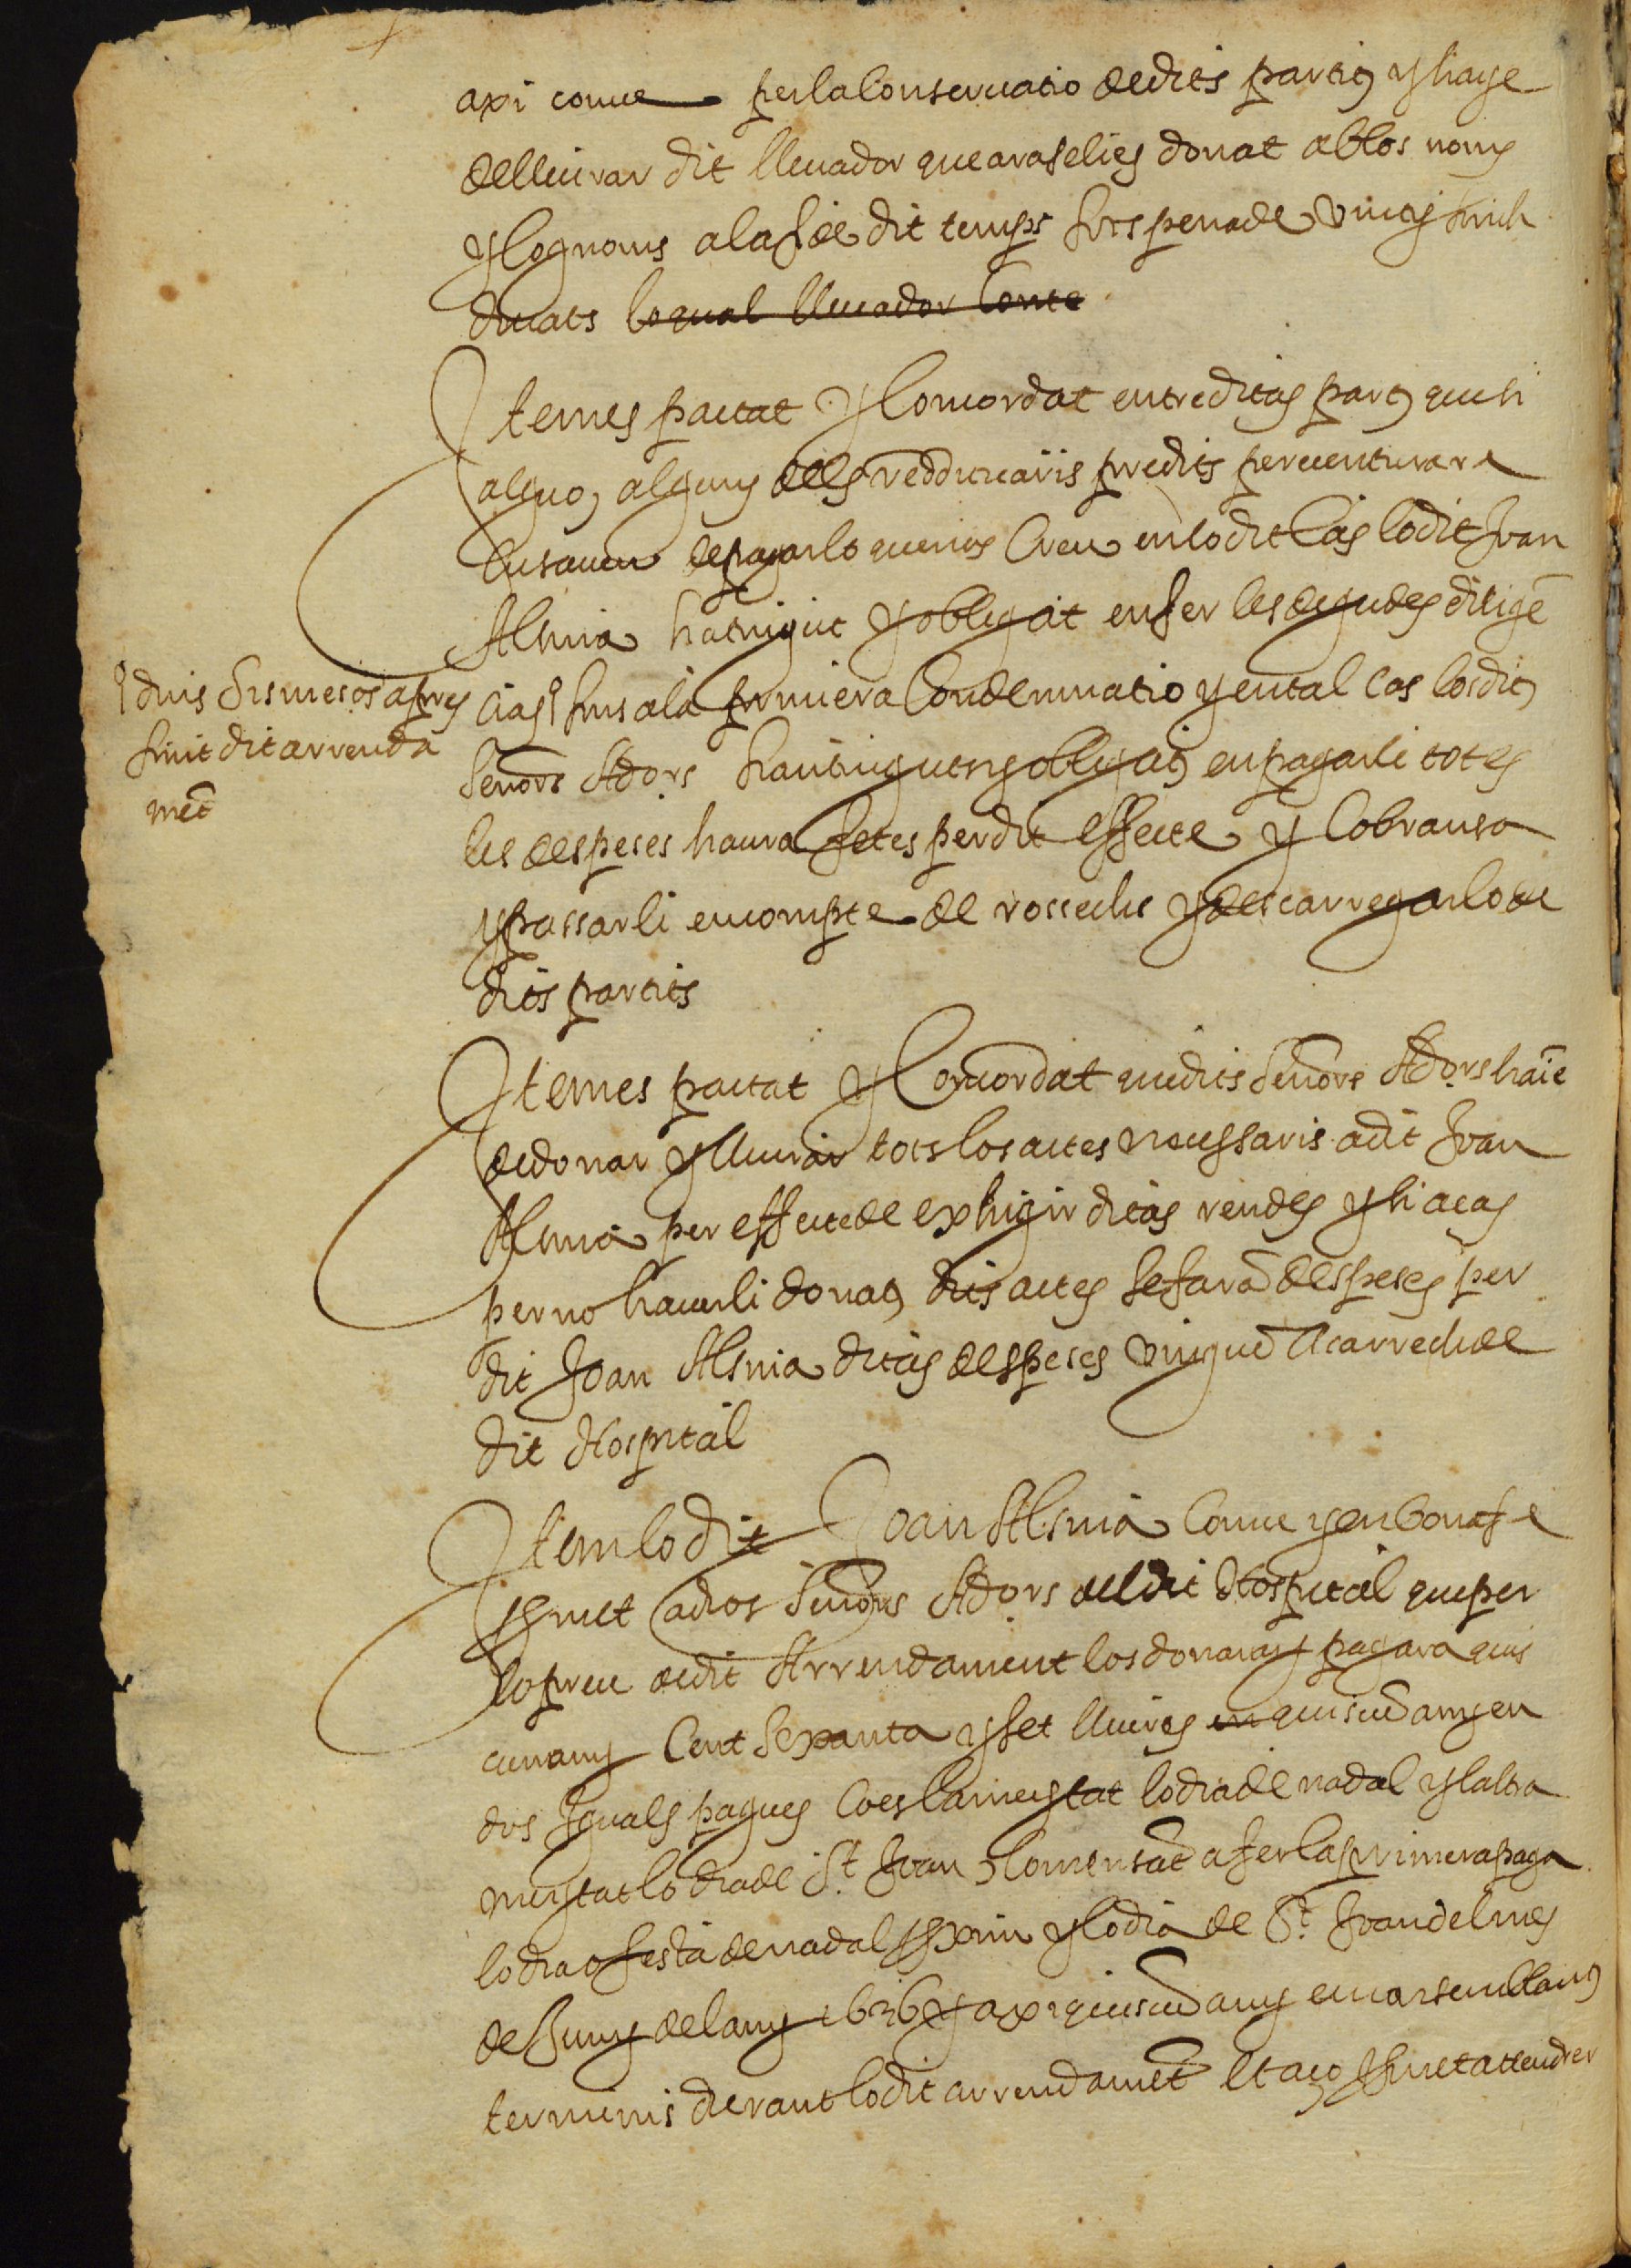 axi conve per la Conservatio de dits partits y haye
de llivrar dit llevador que ara se li es donat ab los noms
y Cognoms a la fi de dit temps sots pena de vint y sinch
ducats lo qual llevador Conte
Item es pactat y Concordat entre dites parts que si
algu o alguns dels redditiuaris predits per ventura re
cusauen de pagar lo que nos Creu en lo dit Cas lo dit Juan
Alsina ha tingut y obligat en fer les degudes diligē
cias fins a la primera Condemnatio y en tal cas los dits
Senors Adors han tinguts y obligats en pagarli totes
les despeses haura fetes per dit effecte y Cobransa
y passarli en compte de rossechs y descarregarlo de
dits partits
Item es pactat y Concordat que dits Senors Adors haiē
de donar y lliurar tots los actes necessaris a dit Juan
Alsina per effecte de exhigir dites rendes y si a cas
per no haverli donats dits actes se farā despeses per
dit Joan Alsina dites despeses vinguē a carrech de
dit Hospital
Item lo dit Joan Alsina Conve y en bona fe
promet a dits Senors Adors del dit Hospital que per
lo preu de dit Arrendament los donara y pagara quis
cun any Cent Sexanta y set lliures en quiscū any en
dos Iguals pagues Co es la meytat lo dia de nadal y laltra
meytat lo dia de St Juan Comensāt a fer la primera paga
lo dia o festa de nadal proxim y lo dia de St Juan del mes
de Juny del any 1636 y axi quiscū any en or semblants
terminis durant lo dit arrendamēt Et aço promet attendrer
dins sis mesos apres
finit dit arrenda
mēt